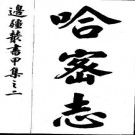 哈密志
邊疆叢書甲集之二